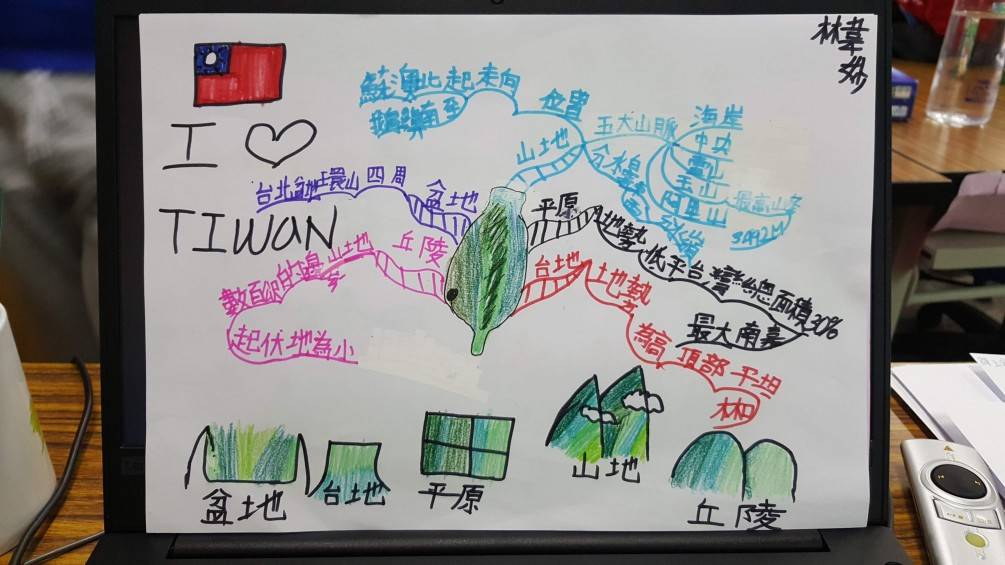 林韋妙
I ♡
TIWAN
蘇澳北起走向
南至
位置
山地
五大山脈
海岸
中央
雪山
玉山
阿里山
最高山峰
3092M
分水嶺
台北盆地環山四周
盆地
平原
地勢
低平台灣總面積30%
最大南嘉
丘陵
數百公尺的
山地
起伏地為小
台地
地勢
為高頂部平坦
林口
盆地
台地
平原
山地
丘陵